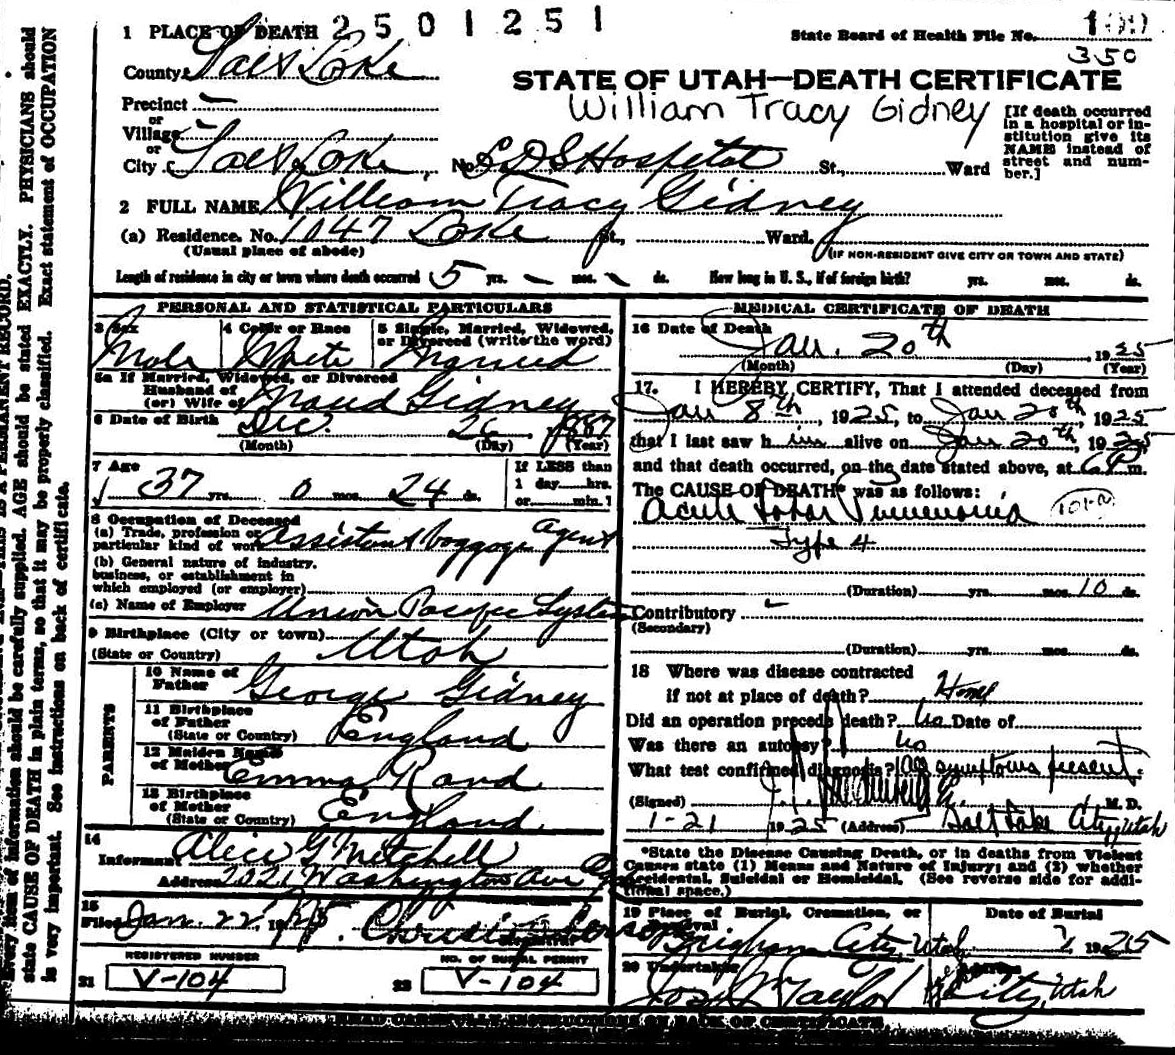 1 PLACE OF DEATH 2501251
State Board of Health File No. 100
350
County Salt Lake
STATE OF UTAH—DEATH CERTIFICATE
William Tracy Gidney
Precinct
or
Village
or
City Salt Lake No. LDS Hospital St., Ward
[If death occurred
in a hospital or in-
stitution give its
NAME instead of
street and num-
ber.]
2 FULL NAME William Tracy Gidney
(a) Residence. No. 1047 Lake St., Ward.
(Usual place of abode)
(IF NON-RESIDENT GIVE CITY OR TOWN AND STATE)
Length of residence in city or town where death occurred 5 yrs. – mos. – ds. How long in U. S., if of foreign birth? yrs. mos. ds.
PERSONAL AND STATISTICAL PARTICULARS
3 Sex 4 Color or Race 5 Single, Married, Widowed,
or Divorced (write the word)
Male White Married
5a If Married, Widowed, or Divorced
Husband of
(or) Wife of Maud Gidney
6 Date of Birth Dec. 26 1887
(Month) (Day) (Year)
7 Age
37 yrs. 0 mos. 24 ds.
If LESS than
1 day hrs.
or min.]
8 Occupation of Deceased
(a) Trade, profession or
particular kind of work Assistant baggage agent
(b) General nature of industry,
business, or establishment in
which employed (or employer)
(c) Name of Employer Union Pacific System
9 Birthplace (City or town)
(State or Country) Utah
PARENTS
10 Name of
Father George Gidney
11 Birthplace
of Father
(State or Country) England
12 Maiden Name
of Mother Emma Rand
13 Birthplace
of Mother
(State or Country) England
14
Informant Alice G Mitchell
Address 2021 Washington Ave
15
Filed Jan. 22, 1925
Registrar
REGISTERED NUMBER
21 V-104
NO. OF BURIAL PERMIT
22 V-104
MEDICAL CERTIFICATE OF DEATH
16 Date of Death
Jan. 20th, 1925
(Month) (Day) (Year)
17. I HEREBY CERTIFY, That I attended deceased from
Jan 8th, 1925, to Jan 20th, 1925
that I last saw him alive on Jan 20th, 1925
and that death occurred, on the date stated above, at 6 P m.
The CAUSE OF DEATH* was as follows:
Acute Lobar Pneumonia 101-a
Type 4
(Duration) yrs. mos. 10 ds.
Contributory –
(Secondary)
(Duration) yrs. mos. ds.
18 Where was disease contracted
if not at place of death? Home
Did an operation precede death? No Date of
Was there an autopsy? No
What test confirmed diagnosis? symptoms present.
(Signed) M. D.
1-21 1925 (Address) Salt Lake City, Utah
*State the Disease Causing Death, or in deaths from Violent
Causes state (1) Means and Nature of Injury; and (2) whether
Accidental, Suicidal or Homicidal. (See reverse side for addi-
tional space.)
19 Place of Burial, Cremation, or
Removal. Date of Burial
Brigham City, Utah 1925
20 Undertaker Address
Jos. Wm Taylor City, Utah
READ CAREFULLY INSTRUCTIONS ON BACK OF CERTIFICATE
THIS IS A PERMANENT RECORD.
Every item of information should be carefully supplied. AGE should be stated EXACTLY. PHYSICIANS should
state CAUSE OF DEATH in plain terms, so that it may be properly classified. Exact statement of OCCUPATION
is very important. See instructions on back of certificate.